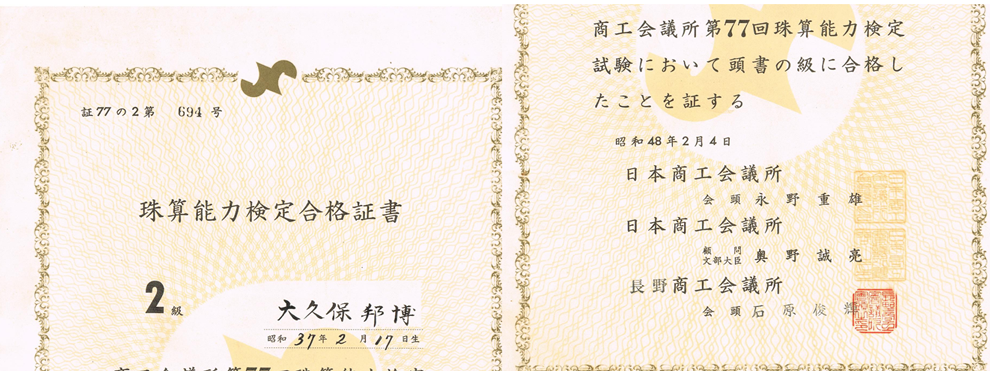 証77の2第 694 号
珠算能力検定合格証書
2級
大久保邦博
昭和37年2月17日生
商工会議所第77回珠算能力検定
商工会議所第77回珠算能力検定
試験において頭書の級に合格し
たことを証する
昭和48年2月4日
日本商工会議所
会頭 永野重雄
日本商工会議所
顧問
文部大臣 奥野誠亮
長野商工会議所
会頭 石原俊輝